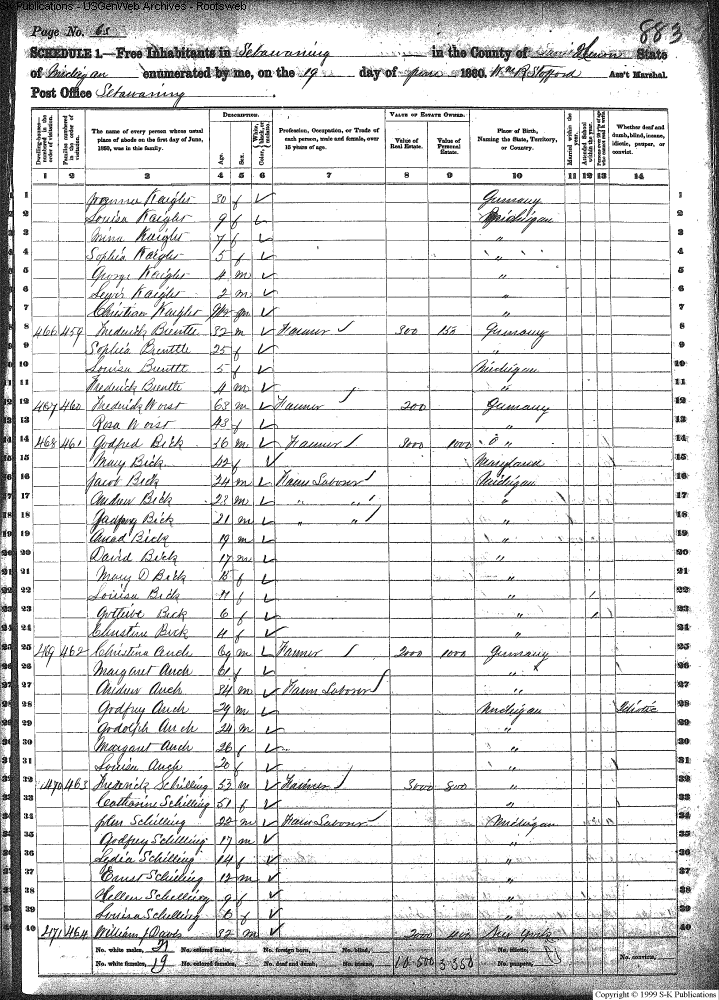 S-K Publications - USGenWeb Archives - Rootsweb
Page No. 65
883
SCHEDULE 1.—Free Inhabitants in Sebawaing in the County of Huron State
of Michigan enumerated by me, on the 19 day of June 1860. Wm R Stafford Ass't Marshal.
Post Office Sebawaing
DESCRIPTION. VALUE OF ESTATE OWNED.
Dwelling-houses—numbered in the order of visitation. Families numbered in the order of visitation. The name of every person whose usual place of abode on the first day of June, 1860, was in this family. Age. Sex. Color, White, black, or mulatto. Profession, Occupation, or Trade of each person, male and female, over 15 years of age. Value of Real Estate. Value of Personal Estate. Place of Birth, Naming the State, Territory, or Country. Married within the year. Attended School within the year. Persons over 20 y'rs of age who cannot read & write. Whether deaf and dumb, blind, insane, idiotic, pauper, or convict.
1 2 3 4 5 6 7 8 9 10 11 12 13 14
1 Kaigler 30 f Germany 1
2 Louisa Kaigler 9 f Michigan 2
3 Mina Kaigler 7 f " 3
4 Sophia Kaigler 5 f " 4
5 George Kaigler 4 m " 5
6 Lewis Kaigler 2 m " 6
7 Christian Kaigler m " 7
8 466 459 Frederick Brentle 32 m Farmer 300 150 Germany 8
9 Sophia Brentle 25 f " 9
10 Louisa Brentle 5 f Michigan 10
11 Frederick Brentle 4 m " 11
12 467 460 Frederick Worst 63 m Farmer 200 Germany 12
13 Rosa Worst 43 f " 13
14 468 461 Godfred Beck 56 m Farmer 3000 1000 " 14
15 Mary Beck 42 f Maryland 15
16 Jacob Beck 24 m Farm Laborer Michigan 16
17 Andrew Beck 23 m " " " 17
18 Beck 21 m " " " 18
19 Beck 19 m " 19
20 David Beck 17 m " 20
21 Mary D Beck 15 f " 21
22 Louisa Beck 11 f " 22
23 Beck 6 f " 23
24 Christine Beck 4 f " 24
25 469 462 Christina Auch 69 m Farmer 2000 1000 Germany 25
26 Margaret Auch 61 f " 26
27 Andrew Auch 34 m Farm Laborer " 27
28 Godfrey Auch 29 m Michigan Idiotic 28
29 Godolph Auch 24 m " 29
30 Margaret Auch 26 f " 30
31 Louisa Auch 20 f " 31
32 470 463 Frederick Schilling 53 m Farmer 3000 800 " 32
33 Catharine Schilling 51 f " 33
34 Schilling 20 m Farm Laborer Michigan 34
35 Godfrey Schilling 17 m " 35
36 Lydia Schilling 14 f " 36
37 Ernst Schilling 12 m " 37
38 Hellen Schilling 9 f " 38
39 Louisa Schilling 6 f " 39
40 471 464 William J Davis 32 m 2000 400 New York 40
No. white males, 21 No. colored males, No. foreign born, No. blind, No. idiotic,
No. white females, 19 No. colored females, No. deaf and dumb, No. insane, 10 500 3 350 No. paupers, No. convicts,
Copyright © 1999 S-K Publications